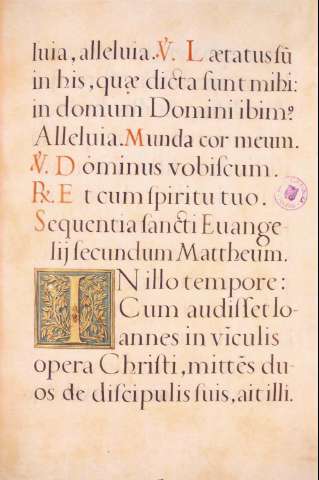 luia, alleluia. ℣. Lætatus sũ
in his, quæ dicta sunt mihi:
in domum Domini ibimꝰ
Alleluia. Munda cor meum.
℣. Dóminus vobiscum.
℟. Et cum spiritu tuo.
Sequentia sancti Euange-
lij secundum Mattheum.
IN illo tempore:
Cum audisset Io-
annes in vĩculis
opera Christi, mittẽs du-
os de discipulis suis, ait illi.